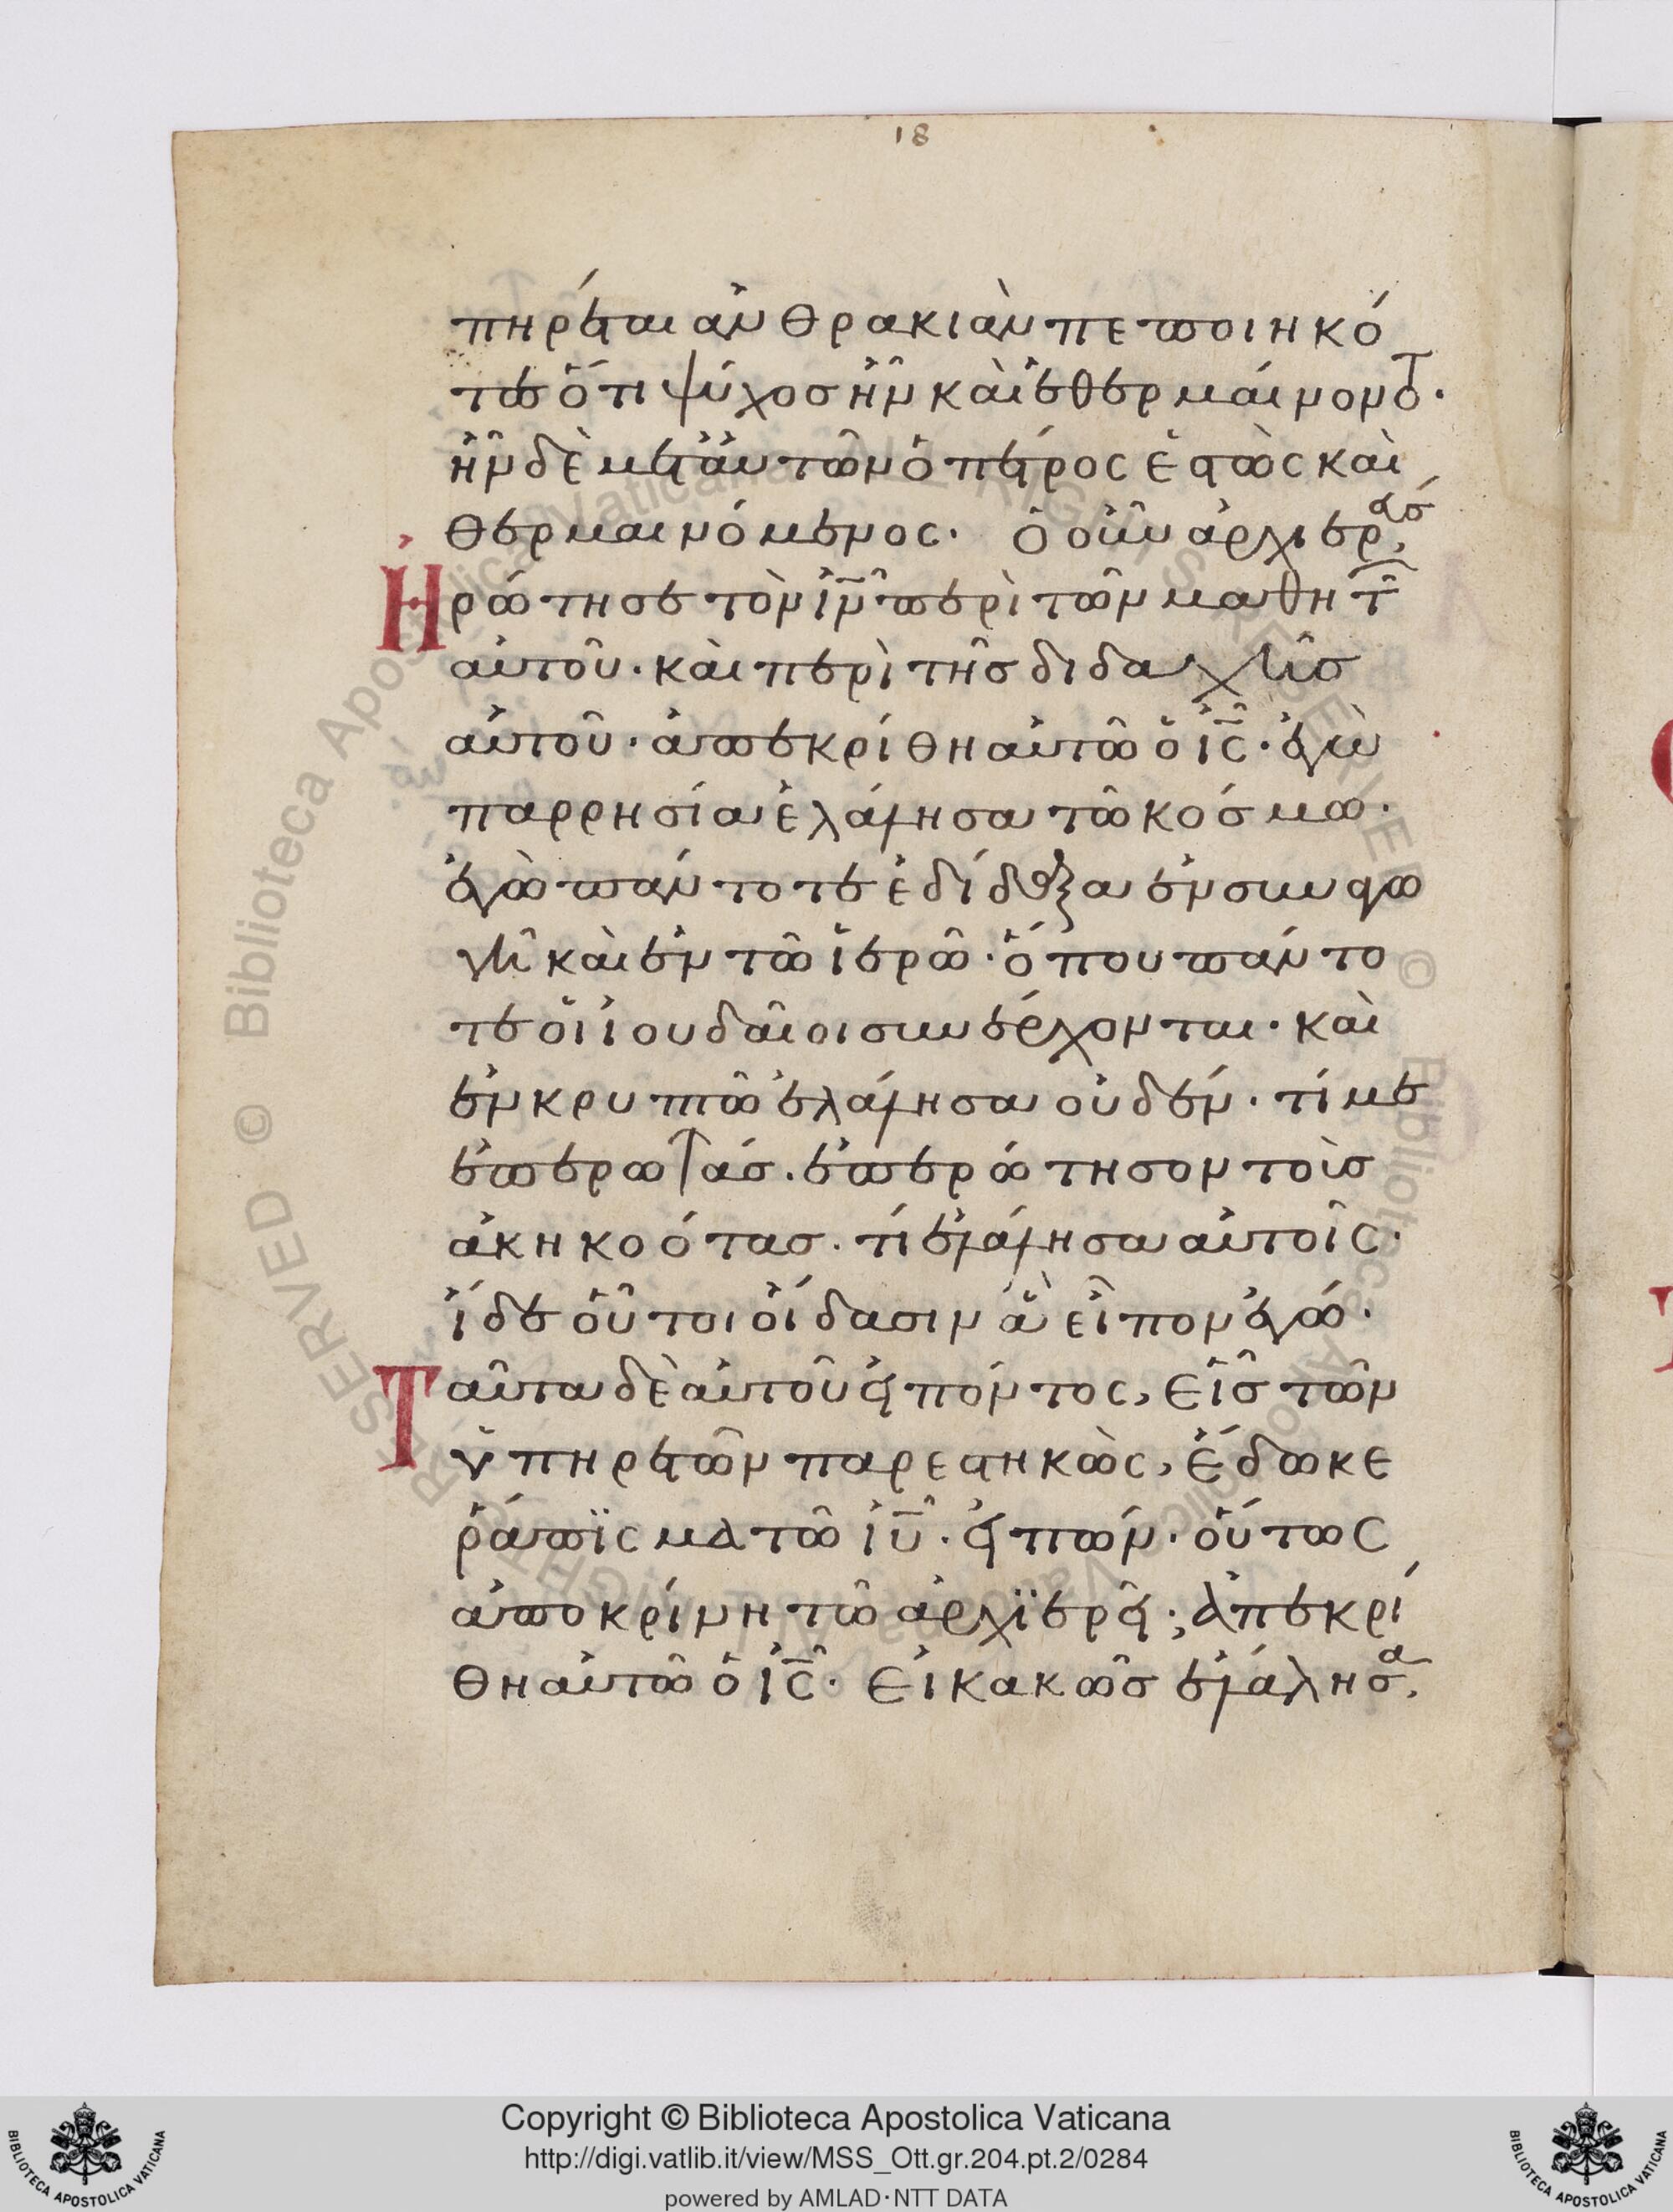 18
πηρέται ἀνθρακιὰν πεποιηκό
τες ὅτι ψύχοσ ἦν καὶ ἐθερμαίνοντ·
ἦν δὲ μετ' αὐτῶν ὁ πέτρος ἑστὼς καὶ
θερμαινόμενος· Ὁ οὖν ἀρχιερ
Ἠρώτησε τὸν ἰν̅ περὶ τῶν μαθητ̅
αὐτοῦ· καὶ περὶ τῆσ διδαχῆσ
αὐτοῦ· ἀπεκρίθη αὐτῶ ὁ ἰς̅· ἐγὼ
παρρησία ἐλάλησα τῶ κόσμω·
ἐγὼ πάντοτε ἐδίδαξα ἐν συναγω
γῆ καὶ ἐν τῶ ἱερῶ· ὅπου πάντο
τε οἱ ἰουδαῖοι συνέρχονται· καὶ
ἐν κρυπτῶ ἐλάλησα οὐδέν· τί με
ἐπερωτάσ· ἐπερώτησον τοὺσ
ἀκηκοότασ· τί ἐλάλησα αὐτοῖς·
ἴδε οὗτοι οἴδασιν ἃ εἶπον ἐγώ·
Ταῦτα δὲ αὐτοῦ εἰπόντος, εἷσ τῶν
ὑπηρετῶν παρεστηκὼς, ἔδωκε
ῥάπϊσμα τῶ ἰυ̅· εἰπών· οὕτως
ἀποκρίνη τῶ ἀρχϊερεῖ·; ἀπεκρί
θη αὐτῶ ὁ ἰς̅· Εἰ κακῶσ ἐλάλησα
Copyright © Biblioteca Apostolica Vaticana
http://digi.vatlib.it/view/MSS_Ott.gr.204.pt.2/0284
powered by AMLAD·NTT DATA
BIBLIOTECA APOSTOLICA VATICANA
BIBLIOTECA APOSTOLICA VATICANA